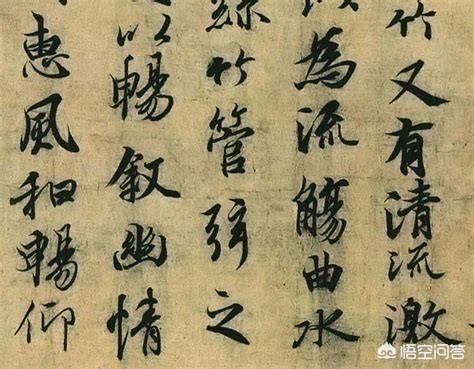 竹又有清流激
為流觴曲水
絲竹管弦之
以暢叙幽情
惠風和暢仰
悟空问答